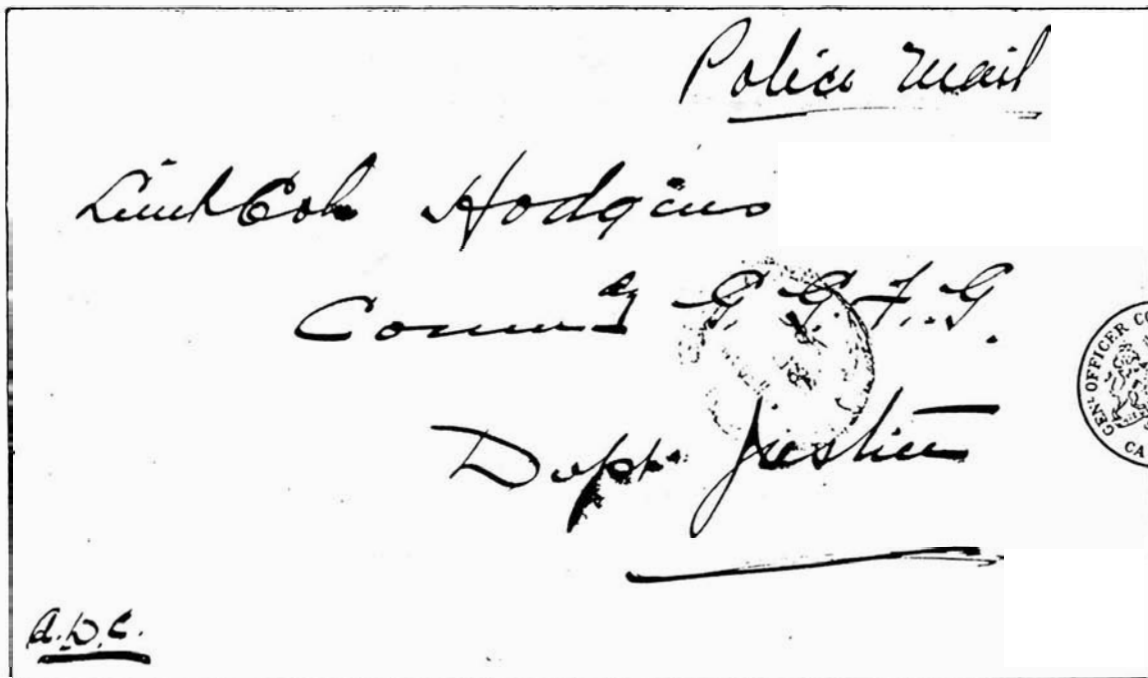 Police Mail
Lieut Col Hodgins
Comm^dg G. G. F. G.
Dept. Justice
A.D.C.
GENL OFFICER CO
CA